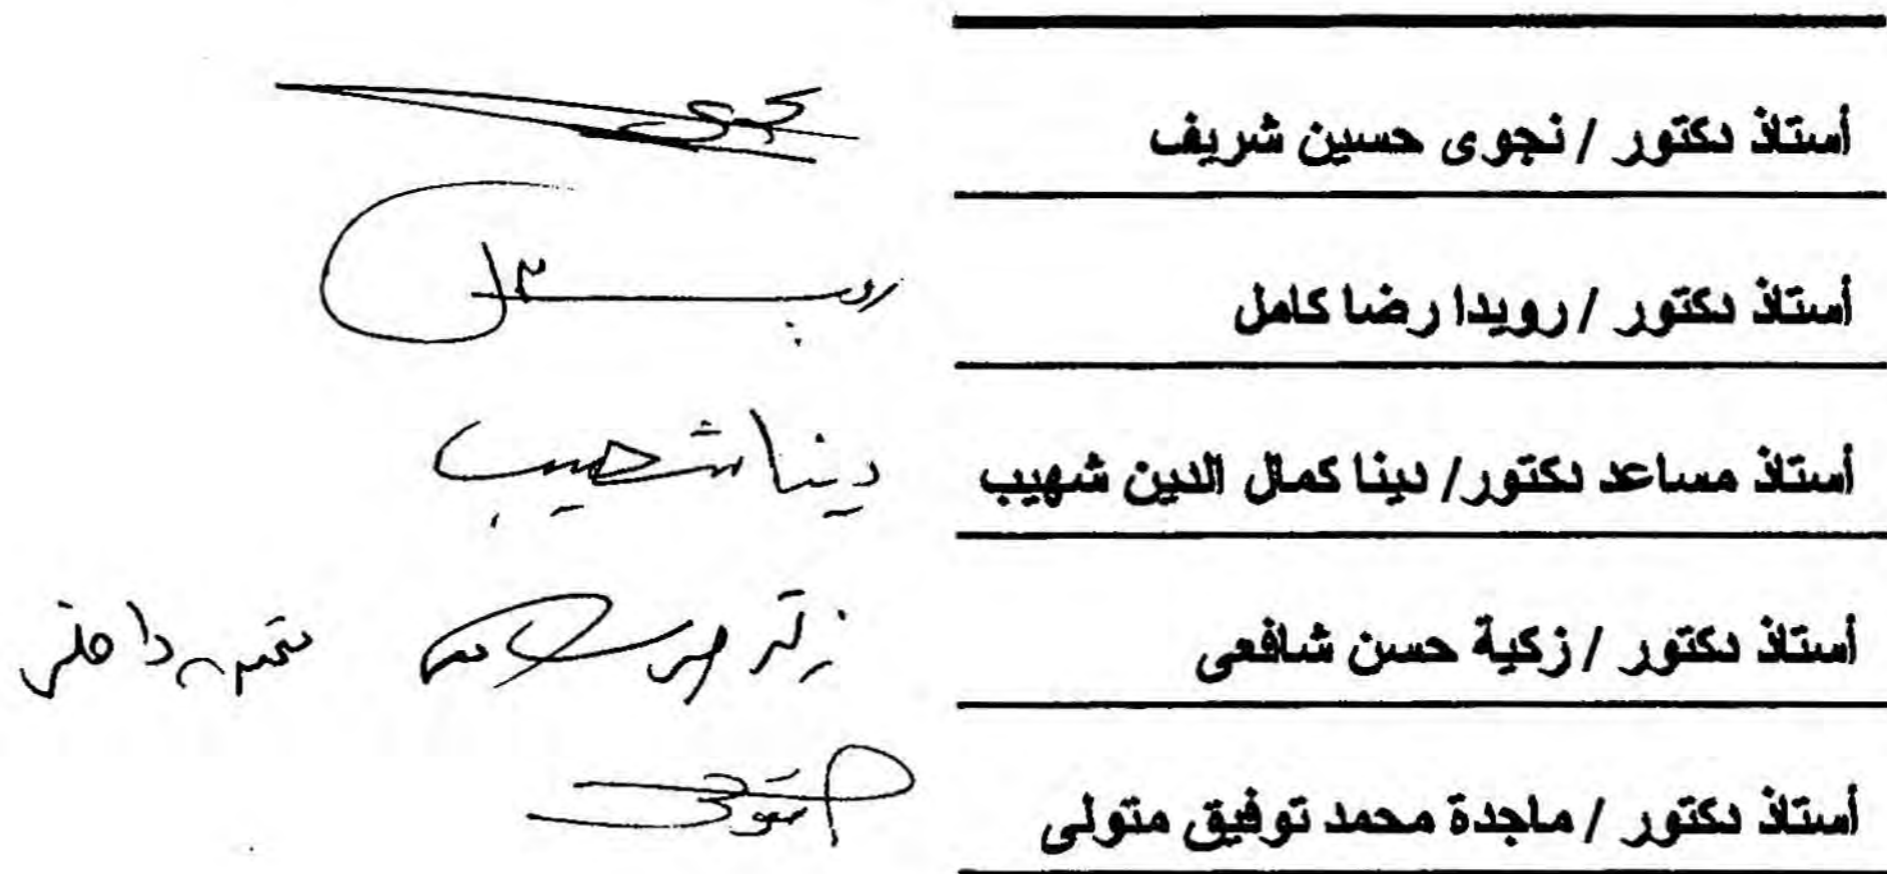 أستاذ دكتور / نجوى حسين شريف
أستاذ دكتور / رويدا رضا كامل
أستاذ مساعد دكتور/ دينا كمال الدين شهيب دينا شهيب
أستاذ دكتور / زكية حسن شافعى
أستاذ دكتور / ماجدة محمد توفيق متولى